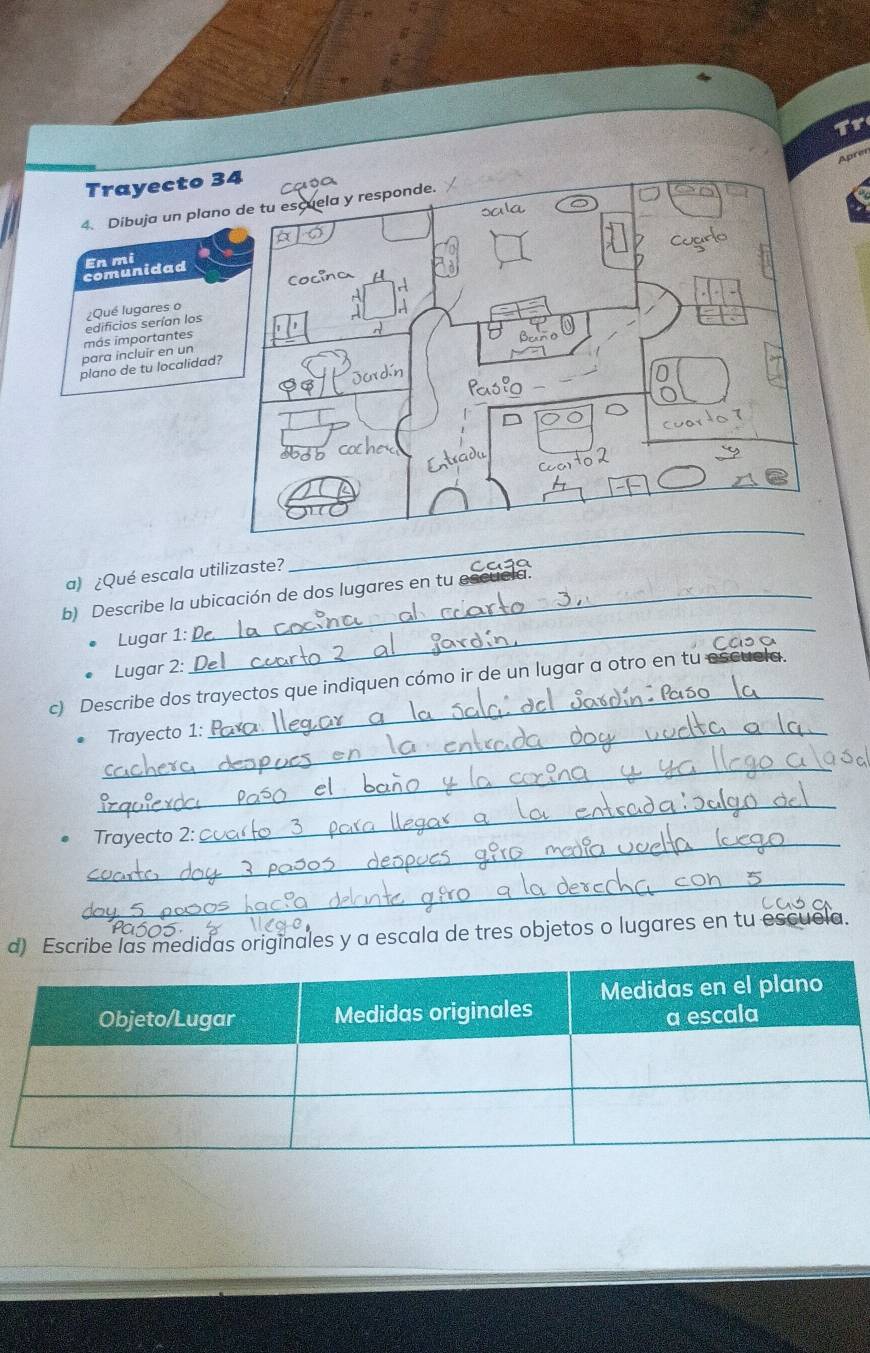 Tr
Apren
Trayecto 34
casa
4. Dibuja un plano de tu escuela y responde.
En mi
comunidad
¿Qué lugares o
edificios serían los
más importantes
para incluir en un
plano de tu localidad?
sala
cuarto
3
cocina
Baño
Jardín
Pasio
cuarto 1
cochera
Entrada
cuarto 2
a) ¿Qué escala utilizaste?
casa
b) Describe la ubicación de dos lugares en tu escuela.
• Lugar 1: De la cocina al cuarto 3,
• Lugar 2: Del cuarto 2 al jardín,
casa
c) Describe dos trayectos que indiquen cómo ir de un lugar a otro en tu escuela.
• Trayecto 1: Para llegar a la sala: del jardín: Paso la
cachera despues en la entrada doy vuelta a la
izquierda paso el baño y la cocina y ya llego a la sa
• Trayecto 2: cuarto 3 para llegar a la entrada: salgo del
cuarto doy 3 pasos despues giro media vuelta luego
doy 5 pasos hacia delante giro a la derecha con 5
pasos. y llego.
casa
d) Escribe las medidas originales y a escala de tres objetos o lugares en tu escuela.
Objeto/Lugar
Medidas originales
Medidas en el plano
a escala